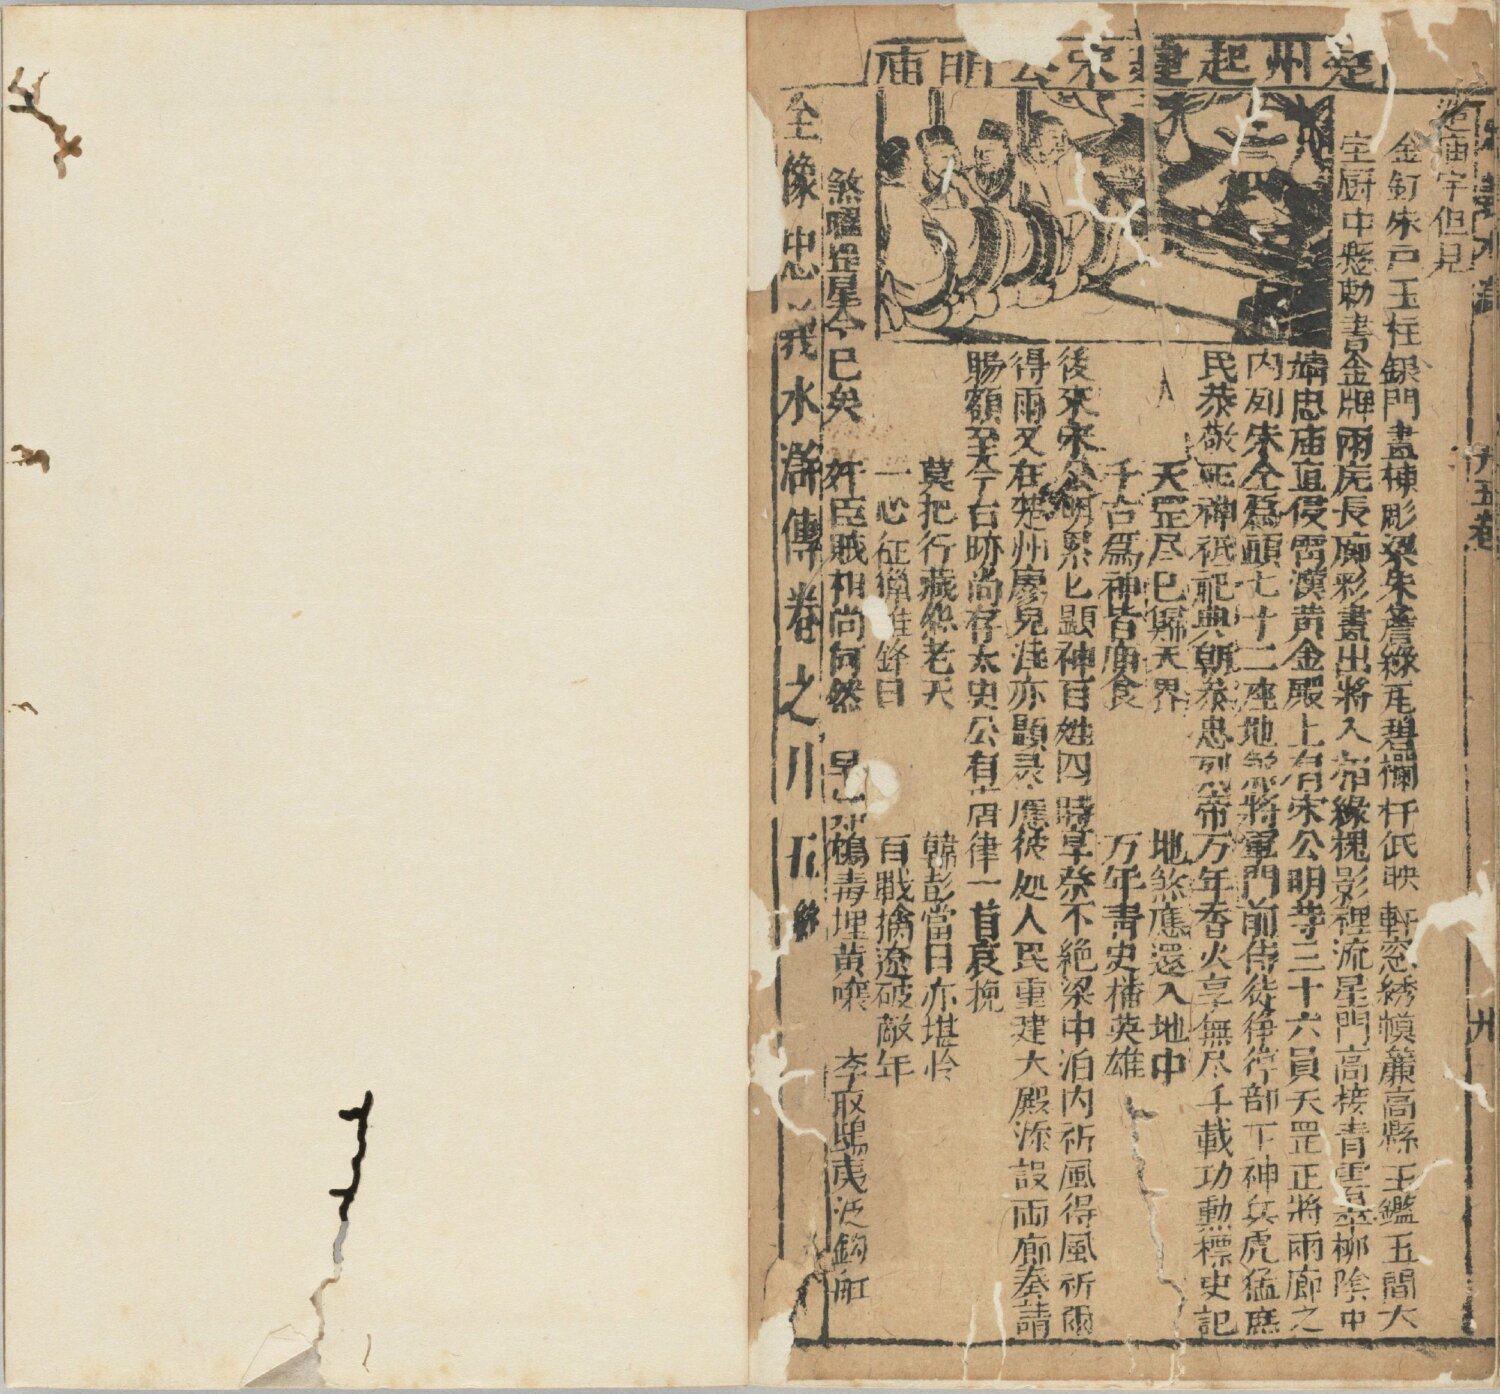 楚州起建宋公明庙
造庙宇但見
金釘朱戸玉柱銀門畫棟彫梁朱簷綠瓦碧襴杆低映軒窓綉幙簾高懸玉鑑五間大
室厨中懸勅書金牌兩庑長廊彩畫出將入相綠槐影裡流星門高接青雲翠柳陰中
靖忠庙直侵霄漢黄金殿上有宋公明等三十六員天罡正將兩廊之
内列朱仝爲頭七十二座地煞將軍門前侍從狰狞部下神兵虎猛庶
民恭敬正神祗祀典朝叅忠烈帝万年香火享無尽千載功勲標史記
天罡尽已歸天界 地煞應還入地中
千古爲神皆庙食 万年青史播英雄
後來宋公明累匕顯神百姓四時享祭不絶梁中泊内祈風得風祈雨
得雨又在楚州廖兒洼亦顯灵應彼処人民重建大殿添設兩廊奏請
賜額至今古跡尚存太史公有唐律一首哀挽
莫把行藏怨老天 韓彭當日亦堪怜
一心征臘摧鋒日 百戰擒遼破敵年
煞曜罡星今已矣 奸臣賊相尚何然 早 鴆毒埋黄壤 李取鴟夷泛鈎舡
全像忠義水滸傳卷之川五終
五卷
九